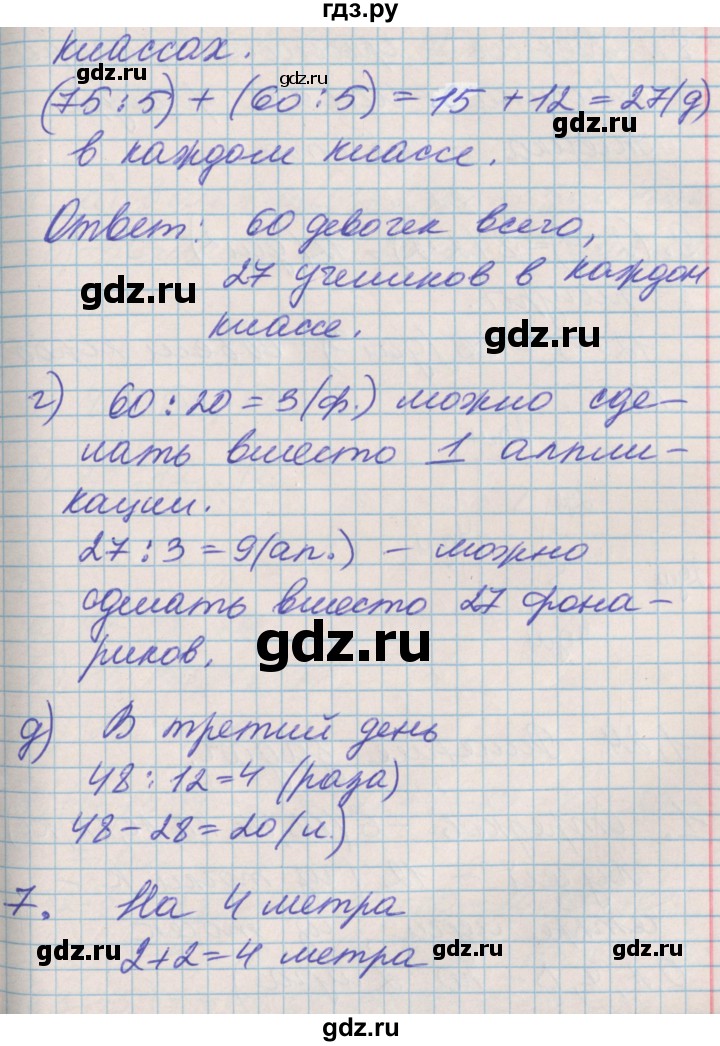 гдз.ру
классах.
gdz.ru
gdz.ru
(75:5)+(60:5)=15+12=27(д)
gdz.ru
в каждом классе.
Ответ: 60 девочек всего,
gdz.ru
27 учеников в каждом
классе.
gdz.ru
г) 60:20=3(ф.) можно сде-
лать вместо 1 аппли-
кации.
27:3=9(ап.) - можно
сделать вместо 27 фона-
риков.
gdz.ru
д) В третий день
48:12=4 (раза)
48-28=20(л.)
7. На 4 метра
gdz.ru
2+2=4 метра
gdz.ru
gdz.ru
gdz.ru